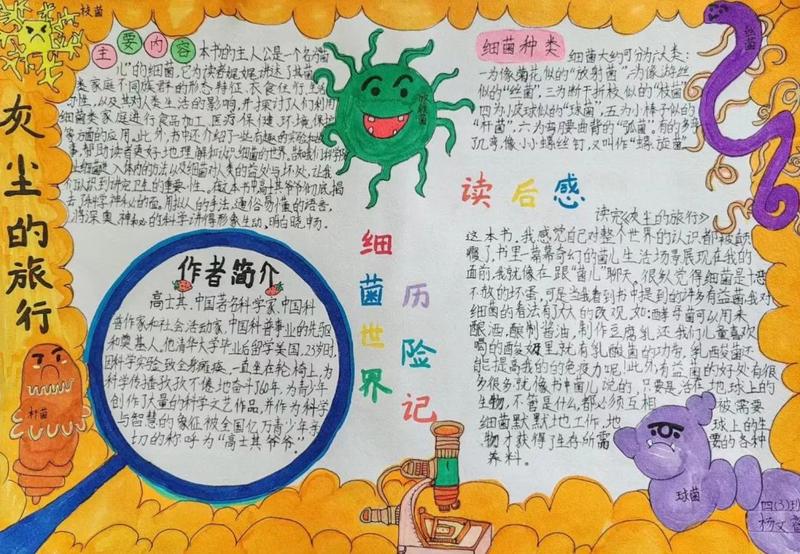 灰尘的旅行
枝菌
主要内容
本书的主人公是一个名为"菌
儿"的细菌,它为读者娓娓讲述了其菌
类家庭不同族群的形态特征、衣食住行、生
习性,以及其对人类生活的影响,并探讨了人们利用
细菌类家庭进行食品加工、医疗保健、环境保护
等方面的应用。此外,书中还介绍了一些有趣的实验和故
事,帮助读者更好地理解和认识细菌的世界。
生细菌进入体内的方法以及细菌对人类的益处与坏处,让我
们认识到讲究卫生的重要性。
了科学神秘的面,用拟人的手法,通俗易懂的语言,
将深奥、神秘的科学讲得形象生动、明白晓畅。
放线菌
细菌种类
细菌大约可分为六大类:
一为像菊花似的"放射菌"二为像游丝
似的"丝菌",三为断干折枝似的"枝菌"
四为小皮球似的"球菌",五为小棒子似的
"杆菌",六为弯腰曲背的"弧菌"。有的多弯
了几弯,像小小螺丝钉,又叫作"螺旋菌"
丝菌
读后感
读完《灰尘的旅行》
这本书,我感觉自己对整个世界的认识都被颠
覆了,书里一幕幕奇幻的菌儿生活场景展现在我的
面前,我就像在跟"菌儿"聊天。很久觉得细菌是十恶
不赦的坏蛋,可是当我看到书中提到的许多有益菌,我对
细菌的看法有了大大的改观。如:酵母菌可以用来
酿酒,酿制酱油,制作豆腐乳,还我们儿童喜欢
喝的酸奶里就有乳酸菌的功劳,乳酸菌还
能提高我们的免疫力呢!此外,有益菌的好处有很
多很多,就像书中菌儿说的,只要是活在地球上的
生物,不管是什么,都必须互相
被需要
细菌默默地工作,地
球上的生
物才获得了生存所需
要的各种
养料。
细菌世界
历险记
作者简介
高士其,中国著名科学家、中国科
普作家和社会活动家,中国科普事业的先驱
和奠基人。他清华大学毕业后留学美国,23岁时,
因科学实验,致全身瘫痪,一直坐在轮椅上,为
科学传播孜孜不倦地奋斗60年,为青少年
创作了大量的科学文艺作品,并作为科学
与智慧的象征被全国亿万青少年亲
切的称呼为"高士其爷爷"。
杆菌
球菌
四(3)班